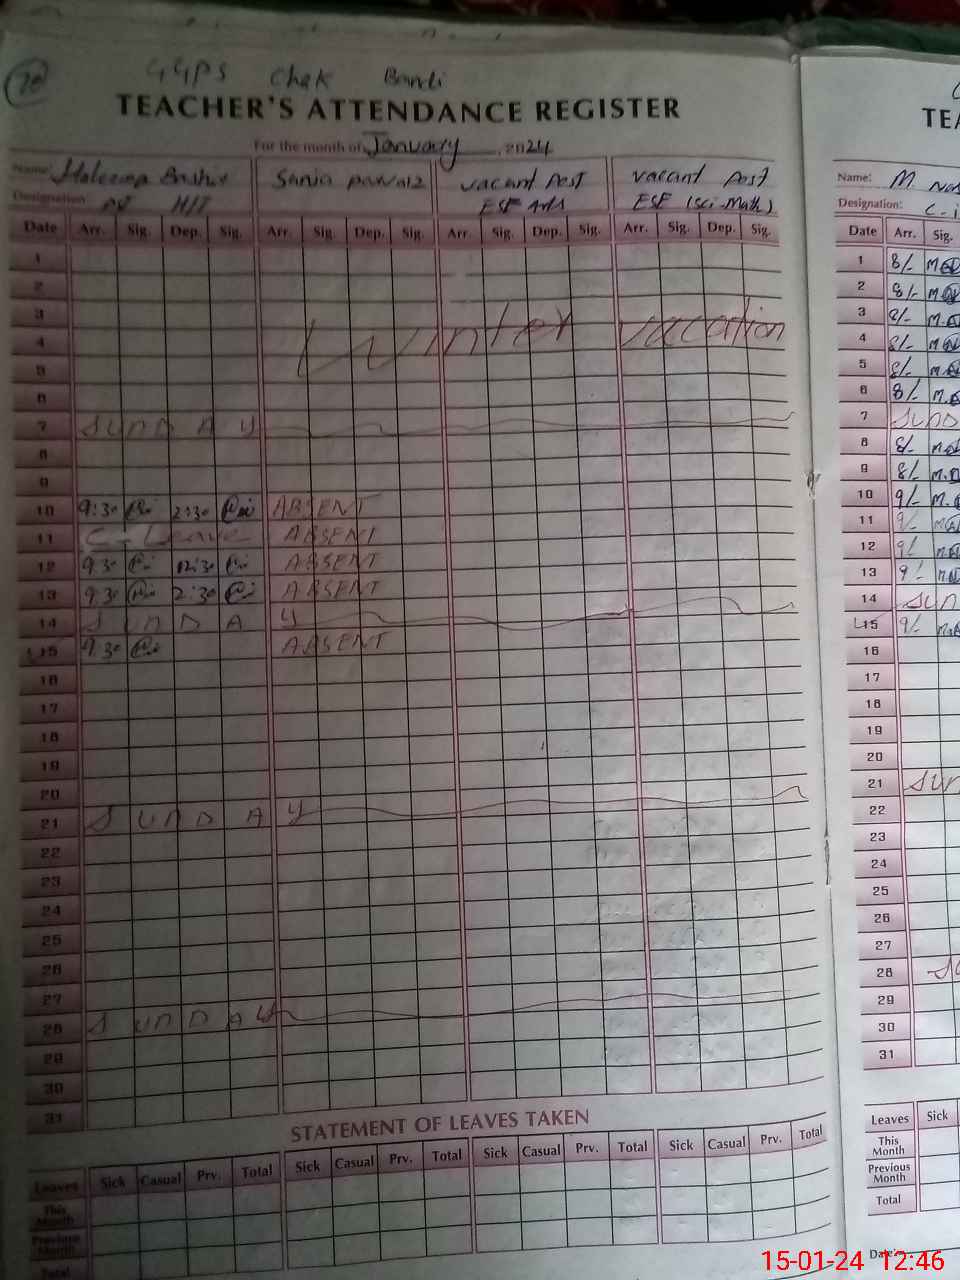 70
GGPS Chak Bandi
TEACHER'S ATTENDANCE REGISTER
For the month of January, 2024
Name: Haleema Bashir Sania parvaiz vacant post vacant post
Designation: H/T ESE Arts ESE (sci-Math)
Date Arr. Sig. Dep. Sig. Arr. Sig. Dep. Sig. Arr. Sig. Dep. Sig. Arr. Sig. Dep. Sig.
1
2
3 Winter vacation
4
5
6
7 SUNDAY
8
9
10 9:30 2:30 ABSENT
11 C-Leave ABSENT
12 9:30 12:30 ABSENT
13 9:30 2:30 ABSENT
14 SUNDAY
15 9:30 ABSENT
16
17
18
19
20
21 SUNDAY
22
23
24
25
26
27
28 SUNDAY
29
30
31
STATEMENT OF LEAVES TAKEN
Leaves Sick Casual Prv. Total Sick Casual Prv. Total Sick Casual Prv. Total Sick Casual Prv. Total
This Month
Previous Month
Total
TEA
Name: M.
Designation: C-i
Date Arr. Sig.
1 8/-
2 8/-
3 8/-
4 8/-
5 8/-
6 8/-
7 SUND
8 8/-
9 8/-
10 9/-
11 9/-
12 9/-
13 9/-
14 SUN
15 9/-
16
17
18
19
20
21 SUN
22
23
24
25
26
27
28
29
30
31
Leaves Sick
This Month
Previous Month
Total
Date:
15-01-24 12:46